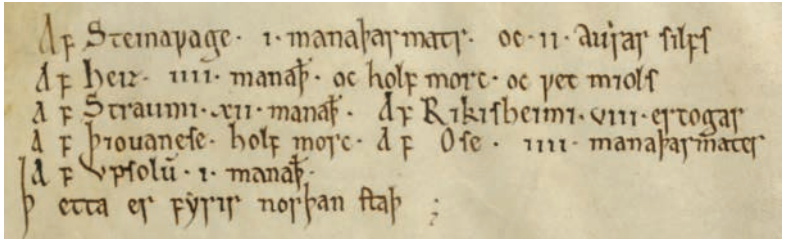 Aꝼ Steinaꝩage · i · manaþarmatr · oc · ii · aurar ſilfſ
Aꝼ heiꝛ · iiii · manaþ · oc holꝼ morc · oc ꝩet miolſ
aꝼ Straumi · xii · manaþ · Aꝼ Rikiſheimi · viii · ertogar
aꝼ þiouaneſe · holꝼ morc · aꝼ Oſe · iiii · manaþarmater
aꝼ vpſolū · i · manaþ ·
þetta er ꝼẏrir norþan ſtaþ ;